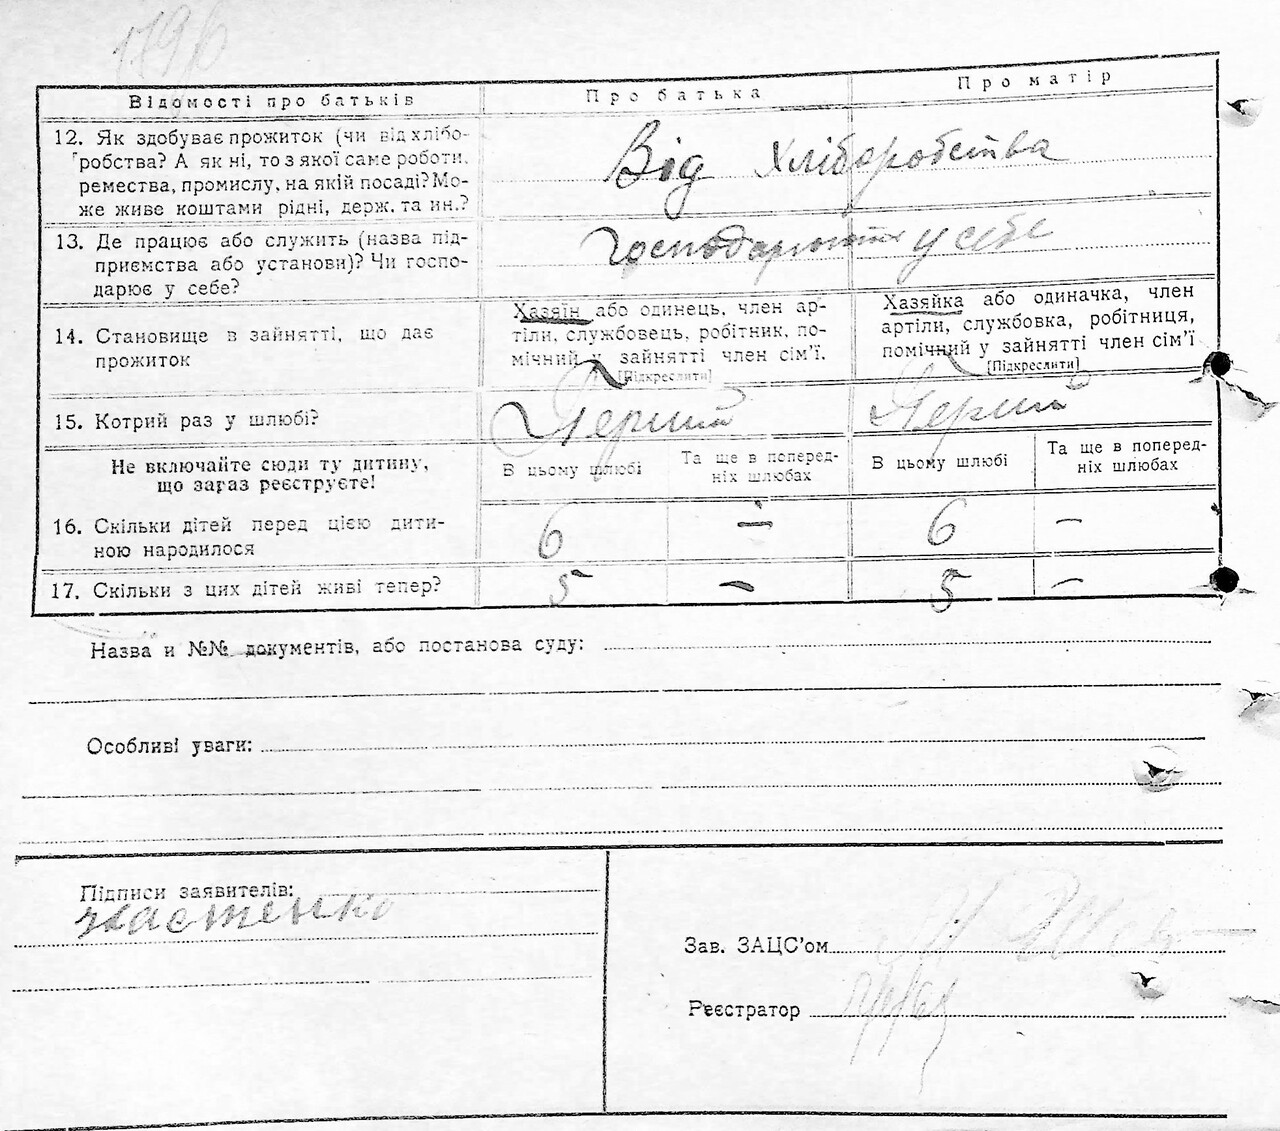 1796
Відомості про батьків Про батька Про матір
12. Як здобуває прожиток (чи від хлібо-
робства? А як ні, то з якої саме роботи,
ремества, промислу, на якій посаді? Мо-
же живе коштами рідні, держ. та ин.?
Від хліборобства
13. Де працює або служить (назва під-
приємства або установи)? Чи госпо-
дарює у себе?
Господарюють у себе
14. Становище в зайнятті, що дає
прожиток
Хазяїн або одинець, член ар-
тіли, службовець, робітник, по-
мічний у зайнятті член сім'ї.
[Підкреслити]
Хазяйка або одиначка, член
артіли, службовка, робітниця,
помічний у зайнятті член сім'ї
[Підкреслити]
15. Котрий раз у шлюбі? Перший Перший
Не включайте сюди ту дитину,
що зараз реєструєте!
В цьому шлюбі
Та ще в поперед-
ніх шлюбах
В цьому шлюбі
Та ще в поперед-
ніх шлюбах
16. Скільки дітей перед цією дити-
ною народилося
6 — 6 —
17. Скільки з цих дітей живі тепер? 5 — 5 —
Назва й №№ документів, або постанова суду:
Особливі уваги:
Підписи заявителів:
Зав. ЗАЦС'ом
Реєстратор